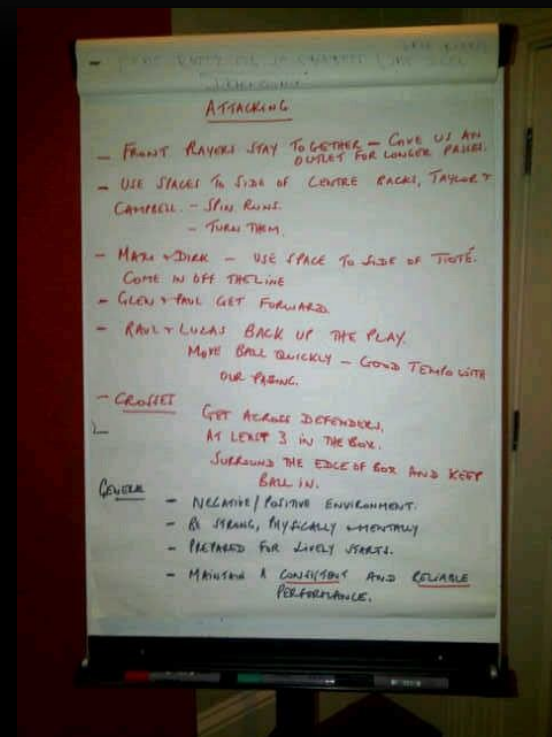 ATTACKING
- FRONT PLAYERS STAY TOGETHER - GIVE US AN
OUTLET FOR LONGER PASSES.
- USE SPACES TO SIDE OF CENTRE BACKS, TAYLOR +
CAMPBELL. - SPIN RUNS.
- TURN THEM.
- MAXI + DIRK - USE SPACE TO SIDE OF TIOTÉ.
COME IN OFF THE LINE
- GLEN + PAUL GET FORWARD
- RAUL + LUCAS BACK UP THE PLAY.
MOVE BALL QUICKLY - GOOD TEMPO WITH
OUR PASSING.
- CROSSES
GET ACROSS DEFENDERS,
AT LEAST 3 IN THE BOX.
SURROUND THE EDGE OF BOX AND KEEP
BALL IN.
GENERAL
- NEGATIVE/POSITIVE ENVIRONMENT.
- BE STRONG, PHYSICALLY + MENTALLY
- PREPARED FOR LIVELY STARTS.
- MAINTAIN A CONSISTENT AND RELIABLE
PERFORMANCE.